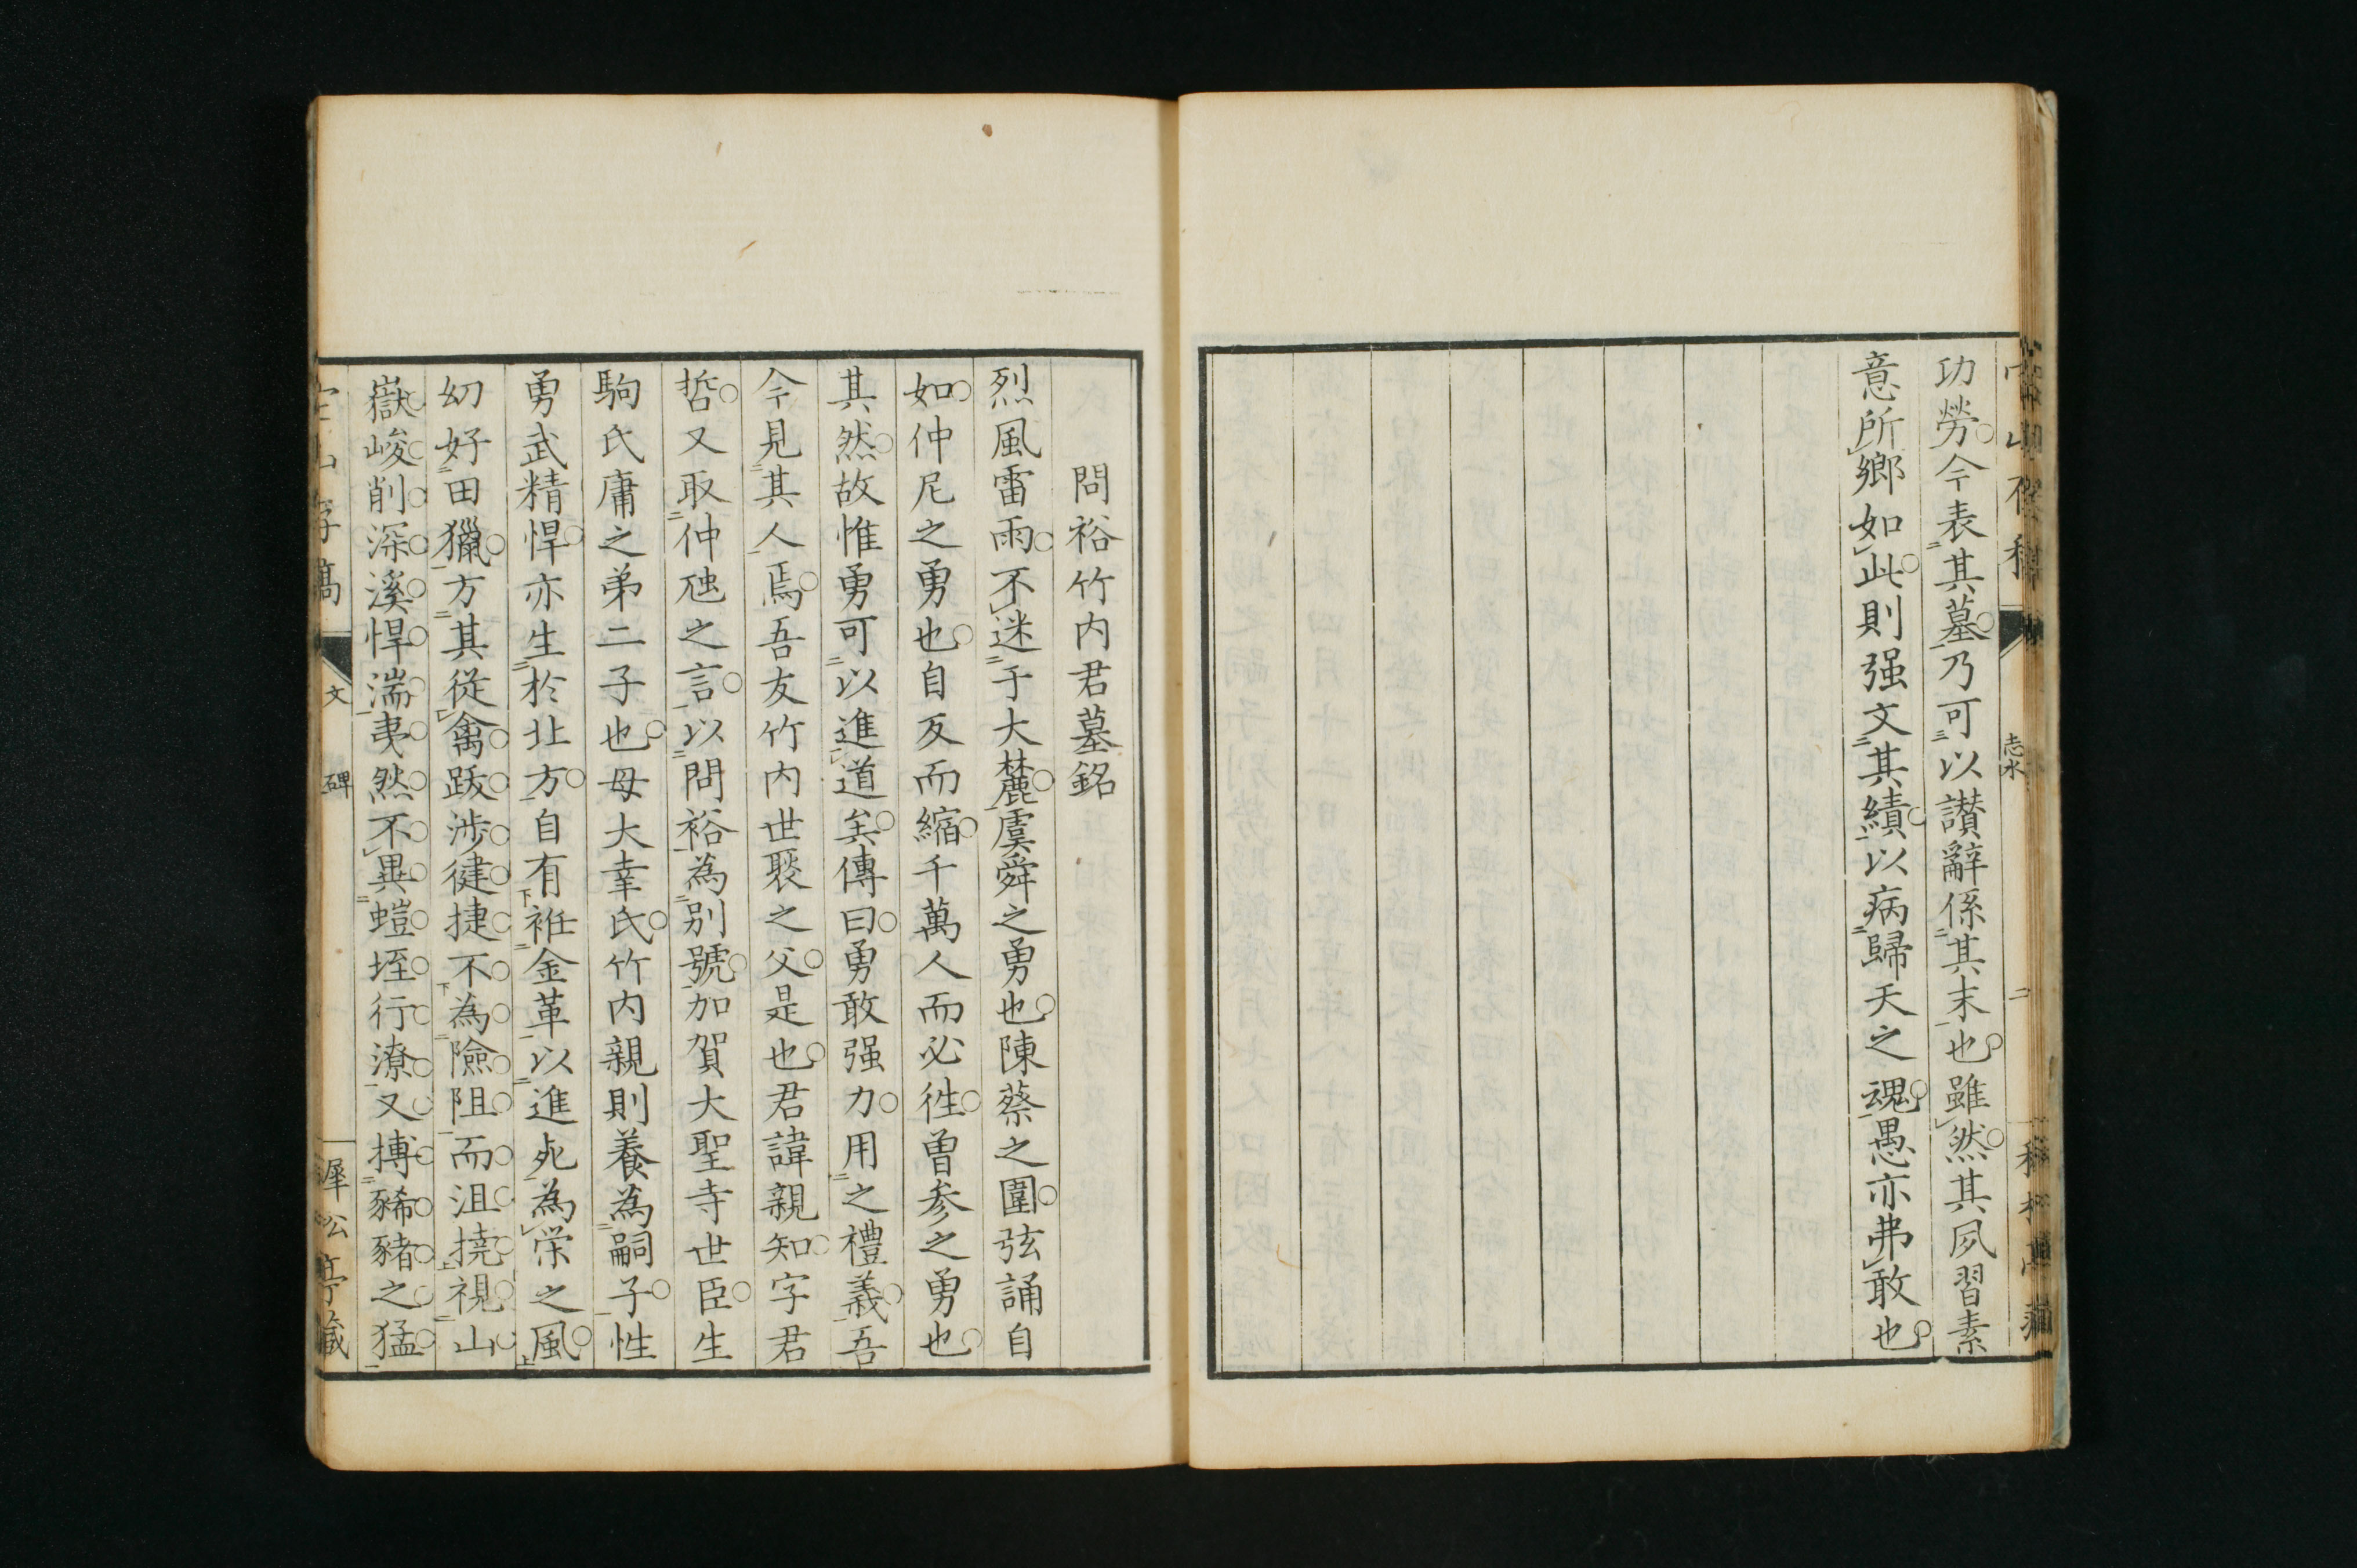 功勞今表其墓乃可以讃辭係其末也雖然其夙習素
意所鄉如此則强文其績以病歸天之魂愚亦弗敢也
問裕竹内君墓銘
烈風雷雨不迷于大麓虞舜之勇也陳蔡之圍弦誦自
如仲尼之勇也自反而縮千萬人而必徃曽参之勇也
其然故惟勇可以進道矣傳曰勇敢强力用之禮義吾
今見其人焉吾友竹内世聚之父是也君諱親知字君
哲又取仲虺之言以問裕為别號加賀大聖寺世臣生
駒氏庸之弟二子也母大幸氏竹内親則養為嗣子性
勇武精悍亦生於北方自有袵金革以進死為栄之風
幼好田獵方其從禽跋涉徤捷不為險阻而沮撓視山
嶽峻削深溪悍湍夷然不異螘垤行潦又搏豨豬之猛
文
碑